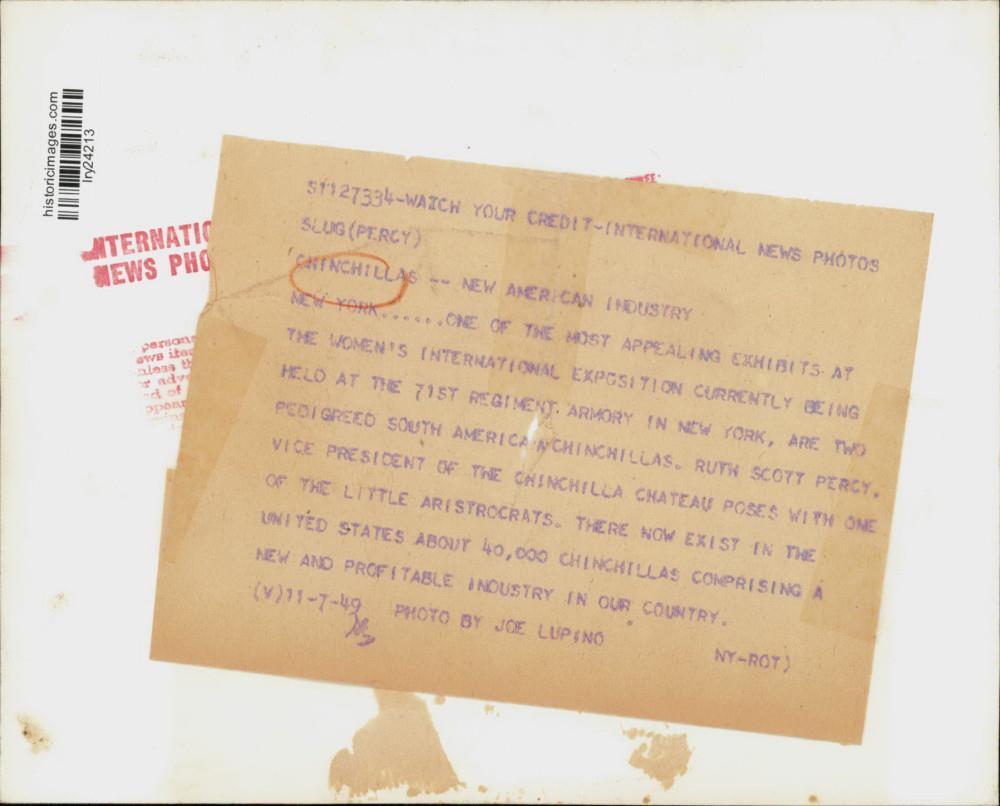 historicimages.com
lry24213
NTERNATIO
NEWS PHO
person
ews ite
nless th
r adv
ed of
ppear
SY127334-WATCH YOUR CREDIT-INTERNATIONAL NEWS PHOTOS
SLUG(PERCY)
CHINCHILLAS -- NEW AMERICAN INDUSTRY
NEW YORK......ONE OF THE MOST APPEALING EXHIBITS AT
THE WOMEN'S INTERNATIONAL EXPOSITION CURRENTLY BEING
HELD AT THE 71ST REGIMENT ARMORY IN NEW YORK, ARE TWO
PEDIGREED SOUTH AMERICAN CHINCHILLAS. RUTH SCOTT PERCY,
VICE PRESIDENT OF THE CHINCHILLA CHATEAU POSES WITH ONE
OF THE LITTLE ARISTROCRATS. THERE NOW EXIST IN THE
UNITED STATES ABOUT 40,000 CHINCHILLAS COMPRISING A
NEW AND PROFITABLE INDUSTRY IN OUR COUNTRY.
(V)11-7-49 PHOTO BY JOE LUPINO
NY-ROT)